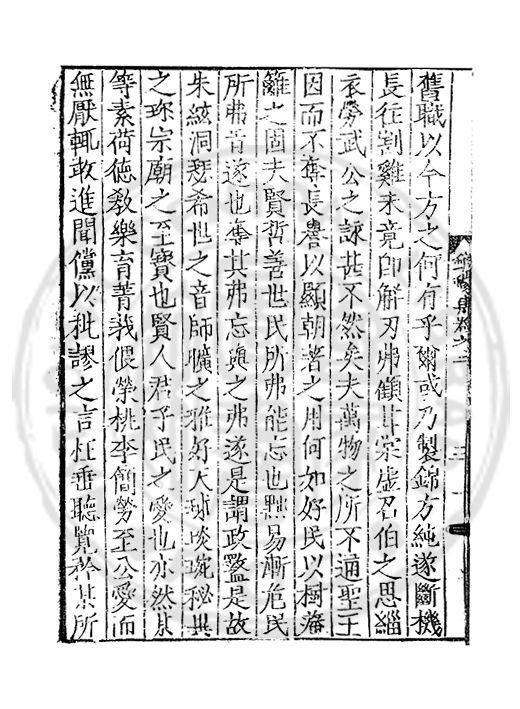 舊職以今方之何有乎爾或乃製錦方純遂斷機
長往割雞未竟卽解刃弗顧甘棠虛召伯之思緇
衣勞武公之詠甚不然矣夫萬物之所不適聖王
因而不奪長譽以顯朝著之用何如好民以樹藩
籬之固夫賢哲善世民所弗能忘也點易漸危民
所弗昔遂也奪其弗忘與之弗遂是謂政盭是故
朱絃洞瑟希世之音師曠之雅好大球琰琬秘典
之珎宗廟之至寶也賢人君子民之愛也亦然某
等素荷德教樂育菁莪偎榮桃李簡勞至公愛而
無厭輒敢進聞儻以秕謬之言枉垂聽覽矜某所